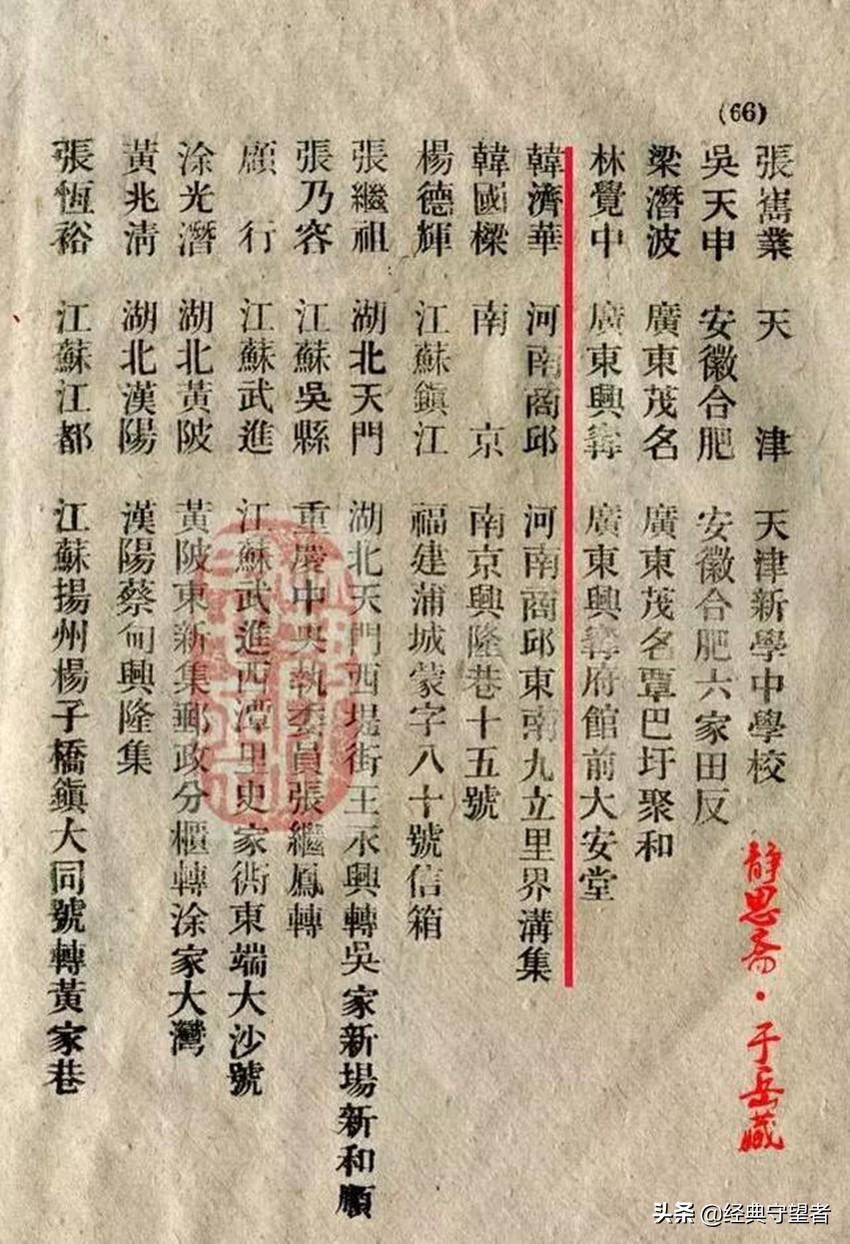 (66)
張雋業 天津 天津新學中學校
吳天申 安徽合肥 安徽合肥六家田反
梁潛波 廣東茂名 廣東茂名覃巴圩聚和
林覺中 廣東興寧 廣東興寧府館前大安堂
韓濟華 河南商邱 河南商邱東南九立里界溝集
韓國樑 南京 南京興隆巷十五號
楊德輝 江蘇鎮江 福建浦城蒙字八十號信箱
張繼祖 湖北天門 湖北天門西場街王永興轉吳家新場新和順
張乃容 江蘇吳縣 重慶中央執委員張繼鳳轉
顧行 江蘇武進 江蘇武進西潭里史家衖東端大沙號
涂光潛 湖北黃陂 黃陂東新集郵政分櫃轉涂家大灣
黃兆清 湖北漢陽 漢陽蔡甸興隆集
張恆裕 江蘇江都 江蘇揚州楊子橋鎮大同號轉黃家巷
静思斋·于岳藏
头条 @经典守望者